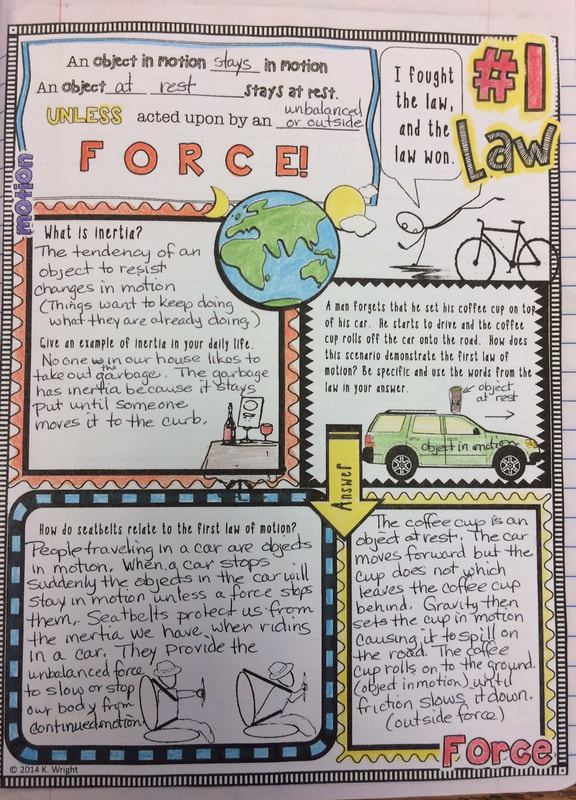 An object in motion stays in motion
An object at rest stays at rest.
UNLESS acted upon by an unbalanced
or outside
FORCE!
I fought
the law,
and the
law won.
#1
Law
motion
What is inertia?
The tendency of an
object to resist
changes in motion
(Things want to keep doing
what they are already doing.)
Give an example of inertia in your daily life.
No one in our house likes to
take out the garbage. The garbage
has inertia because it stays
put until someone
moves it to the curb.
A man forgets that he set his coffee cup on top
of his car. He starts to drive and the coffee
cup rolls off the car onto the road. How does
this scenario demonstrate the first law of
motion? Be specific and use the words from the
law in your answer.
object
at rest
object in motion
Answer
How do seatbelts relate to the first law of motion?
People traveling in a car are objects
in motion. When a car stops
suddenly the objects in the car will
stay in motion unless a force stops
them. Seatbelts protect us from
the inertia we have when riding
in a car. They provide the
unbalanced force
to slow or stop
our body from
continued motion.
The coffee cup is an
object at rest. The car
moves forward but the
cup does not which
leaves the coffee cup
behind. Gravity then
sets the cup in motion
causing it to spill on
the road. The coffee
cup rolls on to the ground.
(object in motion) until
friction slows it down.
(outside force)
Force
© 2014 K. Wright